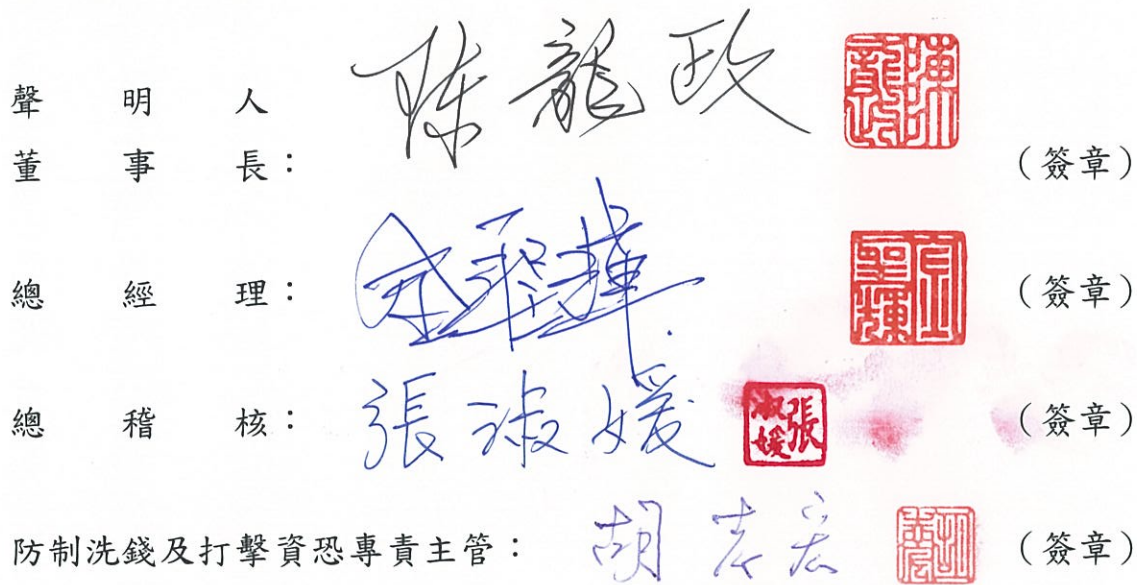 聲明人 陳龍政
董事長： （簽章）
總經理： （簽章）
總稽核： 張淑媛 淑媛張 （簽章）
防制洗錢及打擊資恐專責主管： 胡 宏 （簽章）